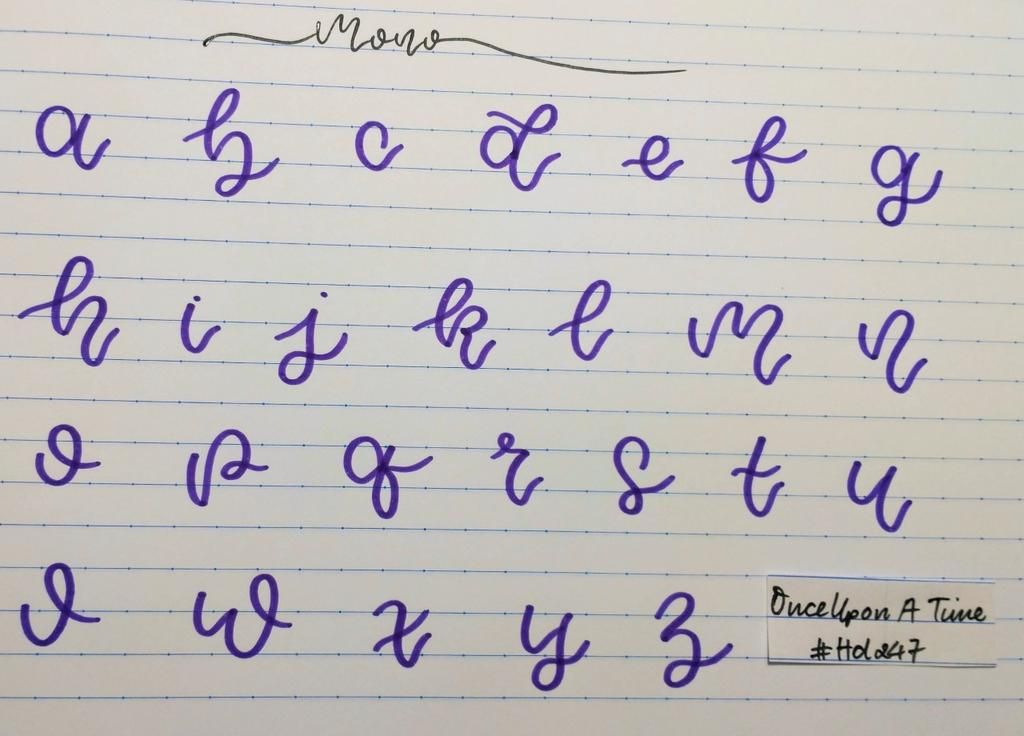 Mono
a b c d e f g
h i j k l m n
o p q r s t u
v w x y z
Once Upon A Time
#Hol247